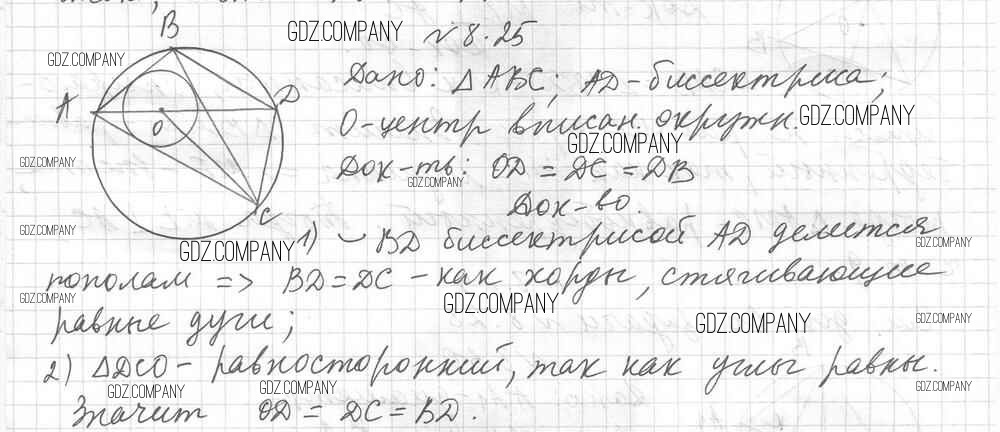 B
GDZ.COMPANY № 8.25
GDZ.COMPANY
Дано: △ABC; AD-биссектриса;
A
D
O
O-центр вписан. окружн. GDZ.COMPANY
GDZ.COMPANY
GDZ.COMPANY
Док-ть: OD = DC = DB
GDZ.COMPANY
Док-во.
C
GDZ.COMPANY
GDZ.COMPANY
1) ◡ BD биссектрисой AD делится
GDZ.COMPANY
пополам => BD = DC - как хорды, стягивающие
GDZ.COMPANY
GDZ.COMPANY
равные дуги;
GDZ.COMPANY
GDZ.COMPANY
2) △DCO - равносторонний, так как углы равны.
GDZ.COMPANY
GDZ.COMPANY
GDZ.COMPANY
Значит OD = DC = BD.